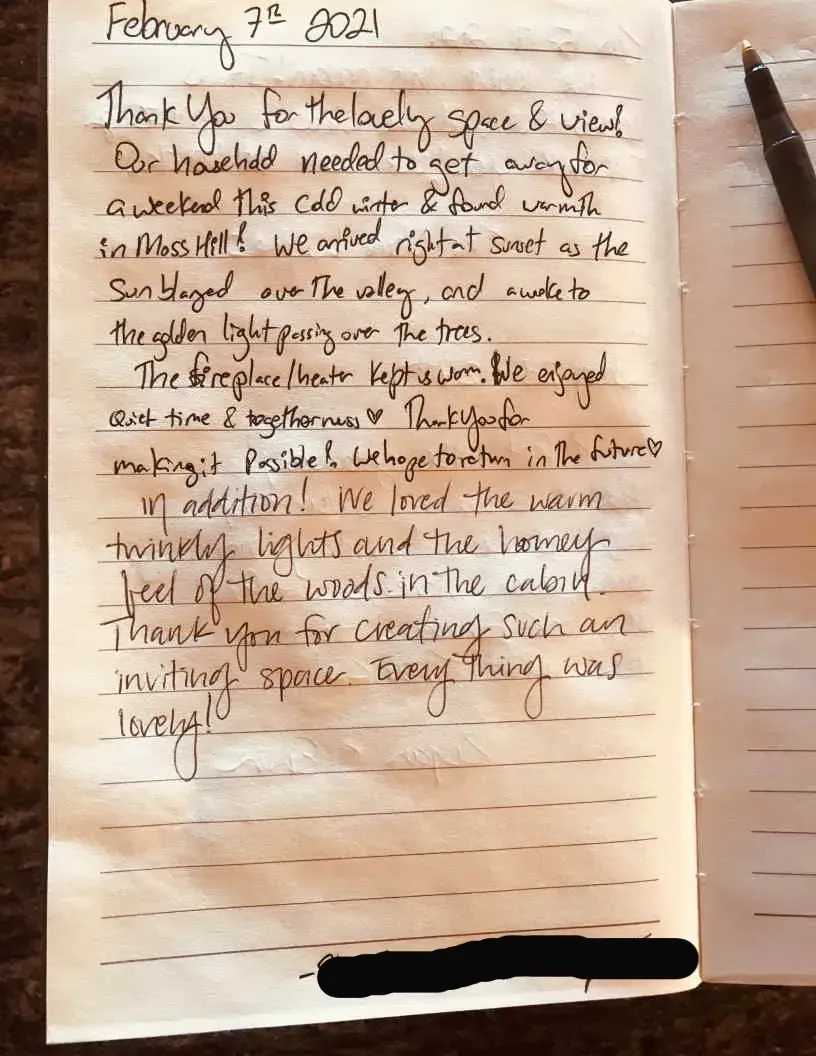 February 7th 2021
Thank You for the lovely space & view!
Our household needed to get away for
a weekend this cold winter & found warmth
in Moss Hill! We arrived right at sunset as the
Sun blazed over The valley, and awoke to
the golden light passing over The trees.
The fireplace/heater kept us warm. We enjoyed
Quiet time & togetherness ♡ Thank You for
making it Possible! We hope to return in The future ♡
in addition! We loved the warm
twinkly lights and the homey
feel of the woods in the cabin.
Thank you for creating such an
inviting space. Every thing was
lovely!